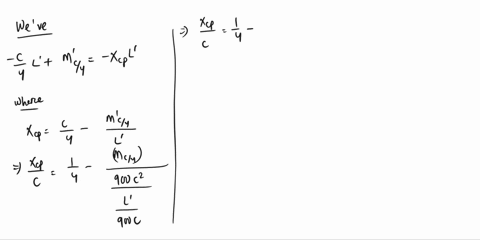 We've
-c/4 L' + M'c/4 = -xcp L'
where
xcp = c/4 - M'c/4 / L'
⇒ xcp/c = 1/4 - (Mc/4) / 900c² / L' / 900c
⇒ xcp/c = 1/4 -